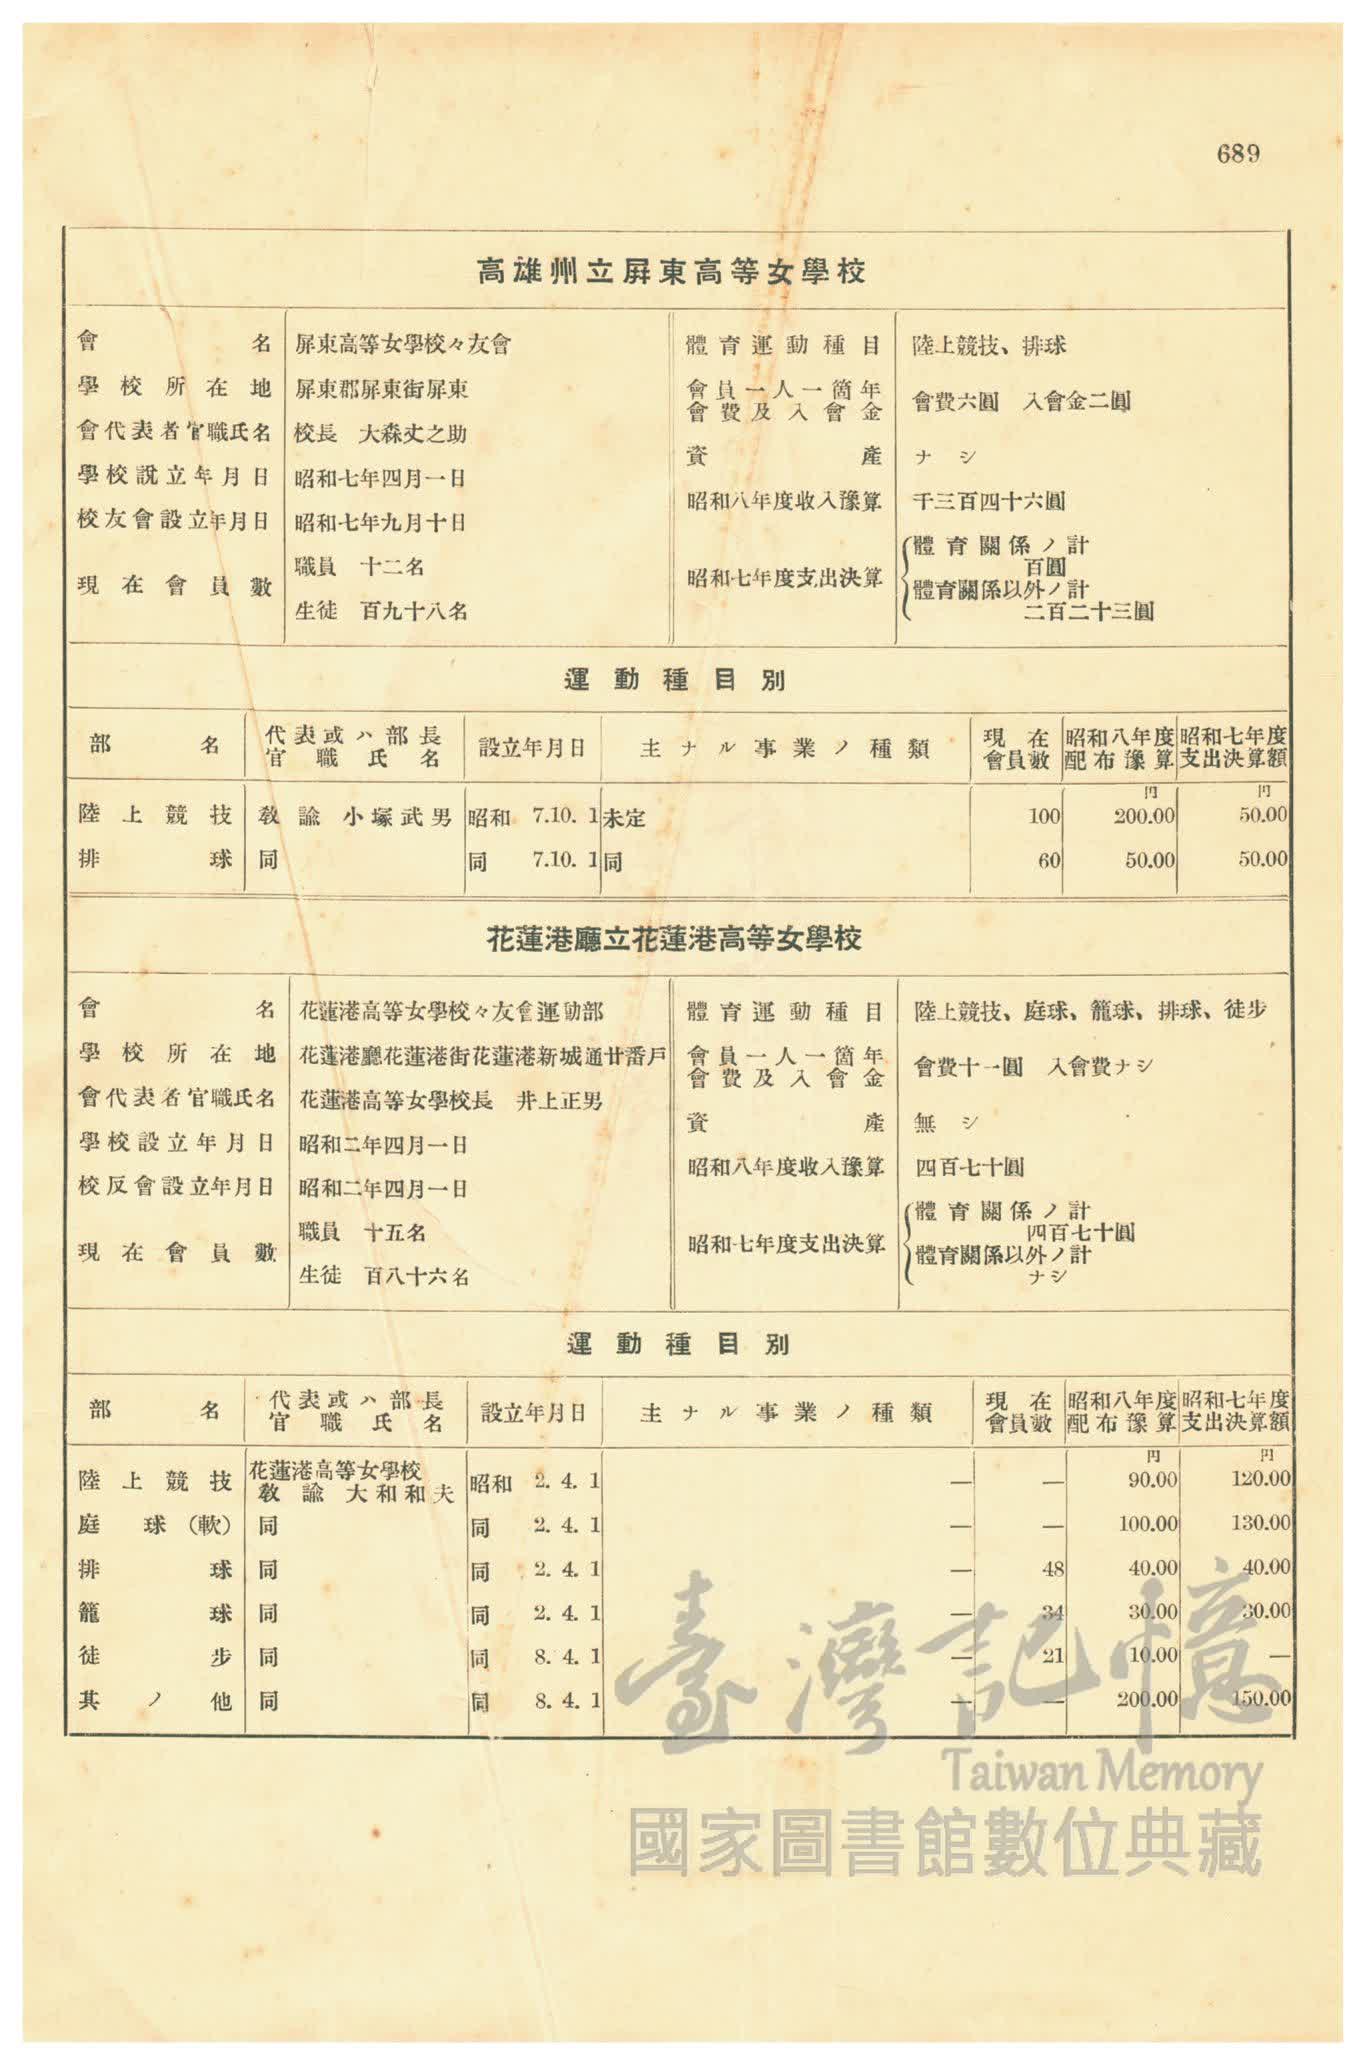 689
高雄州立屏東高等女學校
會名 屏東高等女學校々友會
學校所在地 屏東郡屏東街屏東
會代表者官職氏名 校長 大森丈之助
學校設立年月日 昭和七年四月一日
校友會設立年月日 昭和七年九月十日
現在會員數 職員 十二名
生徒 百九十八名
體育運動種目 陸上競技、排球
會員一人一箇年
會費及入會金 會費六圓 入會金二圓
資產 ナシ
昭和八年度收入豫算 千三百四十六圓
昭和七年度支出決算 體育關係ノ計
百圓
體育關係以外ノ計
二百二十三圓
運動種目別
部名 代表或ハ部長官職氏名 設立年月日 主ナル事業ノ種類 現在會員數 昭和八年度配布豫算 昭和七年度支出決算額
円 円
陸上競技 敎諭 小塚武男 昭和 7.10. 1 未定 100 200.00 50.00
排球 同 同 7.10. 1 同 60 50.00 50.00
花蓮港廳立花蓮港高等女學校
會名 花蓮港高等女學校々友會運動部
學校所在地 花蓮港廳花蓮港街花蓮港新城通廿番戶
會代表者官職氏名 花蓮港高等女學校長 井上正男
學校設立年月日 昭和二年四月一日
校反會設立年月日 昭和二年四月一日
現在會員數 職員 十五名
生徒 百八十六名
體育運動種目 陸上競技、庭球、籠球、排球、徒步
會員一人一箇年
會費及入會金 會費十一圓 入會費ナシ
資產 無シ
昭和八年度收入豫算 四百七十圓
昭和七年度支出決算 體育關係ノ計
四百七十圓
體育關係以外ノ計
ナシ
運動種目別
部名 代表或ハ部長官職氏名 設立年月日 主ナル事業ノ種類 現在會員數 昭和八年度配布豫算 昭和七年度支出決算額
円 円
陸上競技 花蓮港高等女學校敎諭 大和和夫 昭和 2. 4. 1 — — 90.00 120.00
庭球(軟) 同 同 2. 4. 1 — — 100.00 130.00
排球 同 同 2. 4. 1 — 48 40.00 40.00
籠球 同 同 2. 4. 1 — 34 30.00 30.00
徒步 同 同 8. 4. 1 — 21 10.00 —
其ノ他 同 同 8. 4. 1 — — 200.00 150.00
臺灣記憶
Taiwan Memory
國家圖書館數位典藏